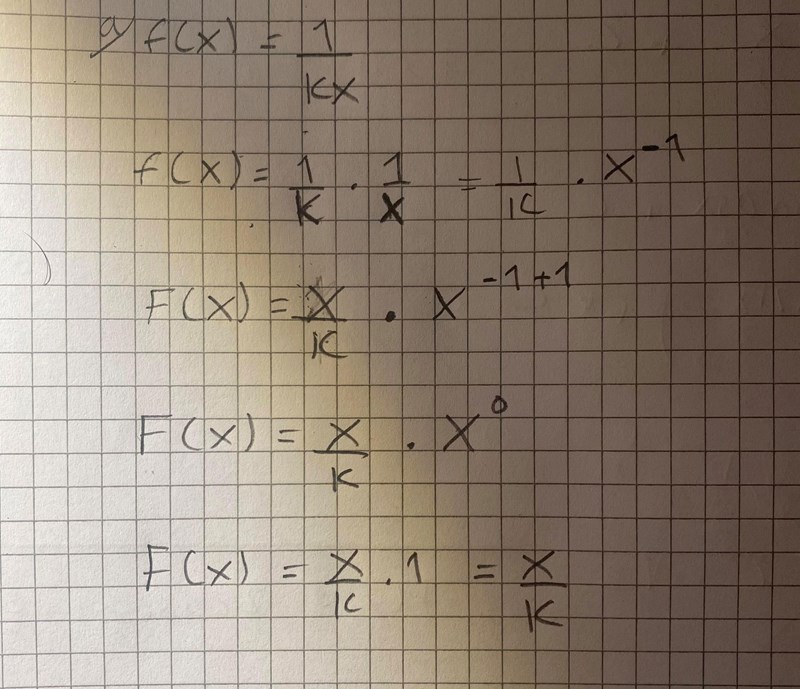 a) f(x) = 1/kx
f(x) = 1/k · 1/x = 1/k · x^-1
F(x) = x/k · x^-1+1
F(x) = x/k · x^0
F(x) = x/k · 1 = x/k